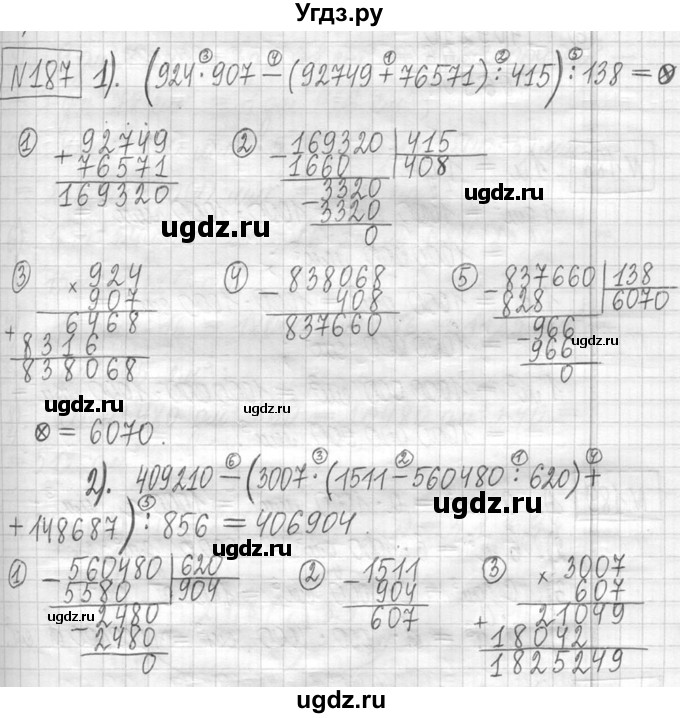 Угдз.ру
№187 1). (924·907−(92749+76571):415):138=⊗
③ ④ ① ② ⑤
① + 92749
76571
169320
② − 169320 | 415
1660 | 408
− 3320
3320
0
ugdz.ru
ugdz.ru
③ × 924
907
6468
+ 8316
838068
④ − 838068
408
837660
⑤ − 837660 | 138
828 | 6070
− 966
966
0
ugdz.ru
ugdz.ru
ugdz.ru
⊗ = 6070.
2). 409210−(3007·(1511−560480:620)+
⑥ ③ ② ① ④
ugdz.ru
+148687):856=406904.
⑤
ugdz.ru
① − 560480 | 620
5580 | 904
− 2480
2480
0
ugdz.ru
② − 1511
904
607
③ × 3007
607
21049
+ 18042
1825249
ugdz.ru
ugdz.ru